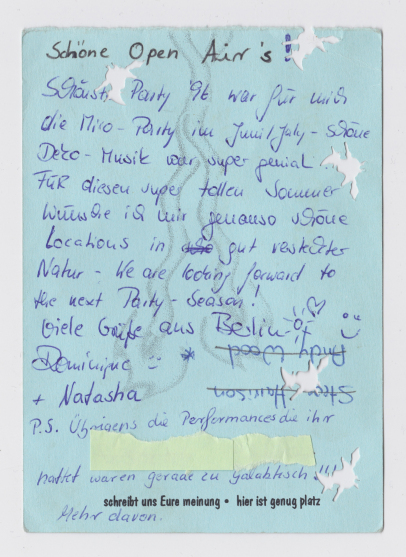 Schöne Open Air's!
Schönste Party '96 war für mich
die Miro-Party im Juni/July - schöne
Deko - Musik war super genial
FÜR diesen super tollen Sommer
wünsche ich mir genauso schöne
Locations in gut versteckter
Natur - We are looking forward to
the next Party-Season!
Viele Grüße aus Berlin
Andy Wood
Dominique
Harrison
+ Natasha
P.S. Übrigens die Performances die ihr
hattet waren geradezu galaktisch!!!
schreibt uns Eure meinung • hier ist genug platz
Mehr davon.